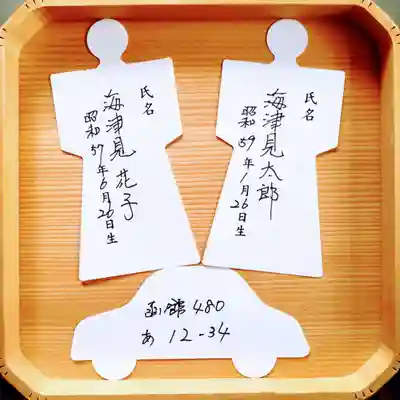 氏名
海津見太郎
昭和59年1月26日生
氏名
海津見花子
昭和57年6月26日生
函館480
あ12-34